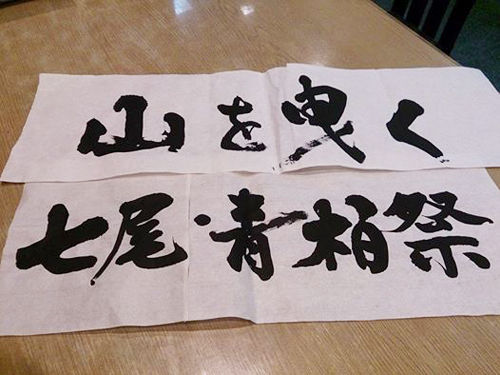 山を曳く
七尾・青柏祭